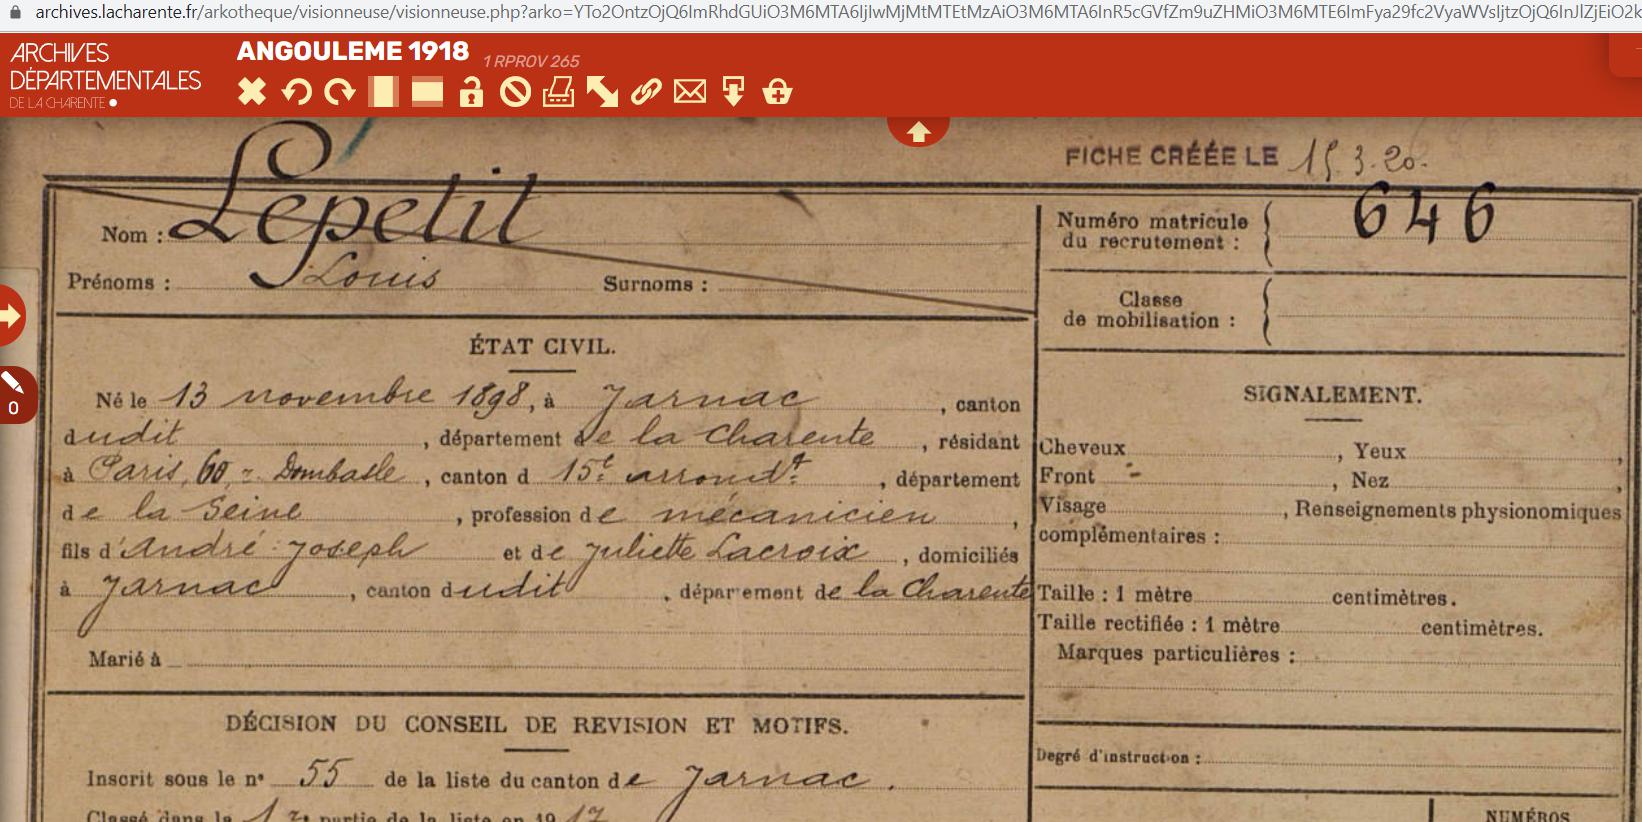 archives.lacharente.fr/arkotheque/visionneuse/visionneuse.php?arko=YTo2OntzOjQ6ImRhdGUiO3M6MTA6IjIwMjMtMTEtMzAiO3M6MTA6InR5cGVfZm9uZHMiO3M6MTE6ImFya29fc2VyaWVsIjtzOjQ6InJlZjEiO2k
ARCHIVES
DÉPARTEMENTALES
DE LA CHARENTE
ANGOULEME 1918 1 RPROV 265
FICHE CRÉÉE LE 15.3.20.
Nom : Lepetit
Prénoms : Louis Surnoms :
Numéro matricule du recrutement : 646
Classe de mobilisation :
0
ÉTAT CIVIL.
Né le 13 novembre 1898, à Jarnac, canton
dudit, département de la Charente, résidant
à Paris, 60, r. Dombasle, canton d 15e arrondt, département
de la Seine, profession de mécanicien,
fils d'André Joseph et de Juliette Lacroix, domiciliés
à Jarnac, canton dudit, département de la Charente
Marié à
SIGNALEMENT.
Cheveux , Yeux ,
Front , Nez ,
Visage , Renseignements physionomiques
complémentaires :
Taille : 1 mètre centimètres.
Taille rectifiée : 1 mètre centimètres.
Marques particulières :
DÉCISION DU CONSEIL DE REVISION ET MOTIFS.
Inscrit sous le n° 55 de la liste du canton de Jarnac.
Classé dans la 1re partie de la liste en 1917
Degré d'instruction :
NUMÉROS